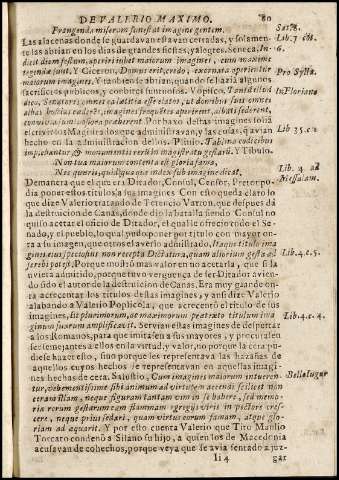 DE VALERIO MAXIMO. 80
Frangenda miseram funestat imagine gentem.
Las alacenas donde se guardavan estavan cerradas, y solamen-
te las abrian en los dias de grandes fiestas, y alegres. Seneca. In-
dicit diem festum, aperiri iubet maiorum imagines, cum maxime
tegendæ sunt. Y Ciceron, Domus erit, credo, exornata aperientur
maiorum imagines. Y tambien se abrian, quando se hazian algunos
sacrificios publicos, y conbites suntuosos. Vopisco. Tanti est
dico, Senatores omnes ea lætitia esse elatos, ut domibus suis omnes
albas hostias cæderet, imagines frequentes aperirent, albati sederent,
Por baxo destas imagines solia
escrivir los Magistrados que administravan, y las cosas, q avian
hecho en la administracion dellos. Plinio. Tablina codicibus
implebantur, & monumentis rerum in magistratu gestaru. Y Tibulo.
Non tua maiorum contenta est gloria fama,
Nec quæris, quid quaque index sub imagine dicat.
Demanera que el que era Ditador, Consul, Censor, Pretor po-
dia poner estos titulos a sus imagines. Con esto queda claro lo
que dize Valerio tratando de Terencio Varron, que despues dá
la destruicion de Canas, donde dio la batalla siendo Consul no
quiso acetar el oficio de Ditador, el qual le ofrecieron el Se-
nado, y el pueblo, lo qual pudo poner por titulo con mayor on-
ra a su imagen, que otros el averlo administrado. Itaque titulo ima-
ginis eius speciosius non recepta Dictatura, quam aliorum gesta ad
scribi potest. Porque mostrò mas valor en no acetarla, que si la
uviera admitido, porque tuvo verguença de ser Ditador avien-
do sido el autor de la destruicion de Canas. Era muy grande on-
ra acrecentar los titulos destas imagines, y ansi dize Valerio
alabando a Valerio Poplicola, que acrecentò el titulo de sus
imagines, sit plurimorum, ac maximorum prætextu titulum ima-
ginum suarum amplificavit. Servian estas imagines de despertar
a los Romanos, para que imitasen a sus mayores, y se procurasen
ser semejantes a ellos en la virtud, y valor, no porque la cera pu-
diese hazer esto, sino porque les representava las hazañas de
aquellos cuyos hechos se representavan en aquellas imagi-
nes hechas de cera. Salustio, Cum imagines maiorum intueren-
tur, vehementissime sibi animum ad virtutem accendi scilicet non
ceram illam, neque figuram tantam vim in se habere, sed memo-
ria rerum gestarum eam flammam egregijs viris in pectore cres-
cere, neque prius sedari, quam virtus eorum famam, atque glo-
riam ad æquarit. Y por esto cuenta Valerio que Tito Manlio
Torcato condenò a Silano su hijo, a quien los de Macedonia
acusavan de cohechos, porque veya que se avia sentado a juz-
Ii 4 gar
Sat. 8.
Lib. 7
6.
Pro Sylla.
In Floriano
Lib 35. c. 2
Lib. 4. ad
Messalam.
Lib. 4. c. 5.
Lib. 4. c. 4.
Bello Iugur